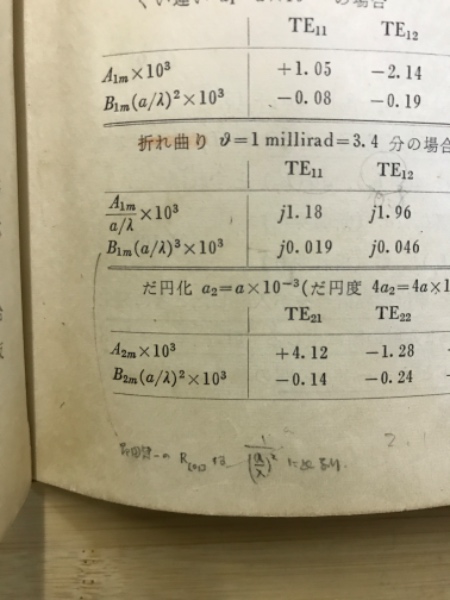 の場合
TE₁₁ TE₁₂
A₁ₘ×10³ +1.05 −2.14
B₁ₘ(a/λ)²×10³ −0.08 −0.19
折れ曲り ϑ=1 millirad=3.4 分の場合
TE₁₁ TE₁₂
A₁ₘ/a/λ ×10³ j1.18 j1.96
B₁ₘ(a/λ)³×10³ j0.019 j0.046
だ円化 a₂=a×10⁻³(だ円度 4a₂=4a×1
TE₂₁ TE₂₂
A₂ₘ×10³ +4.12 −1.28
B₂ₘ(a/λ)²×10³ −0.14 −0.24
2.1